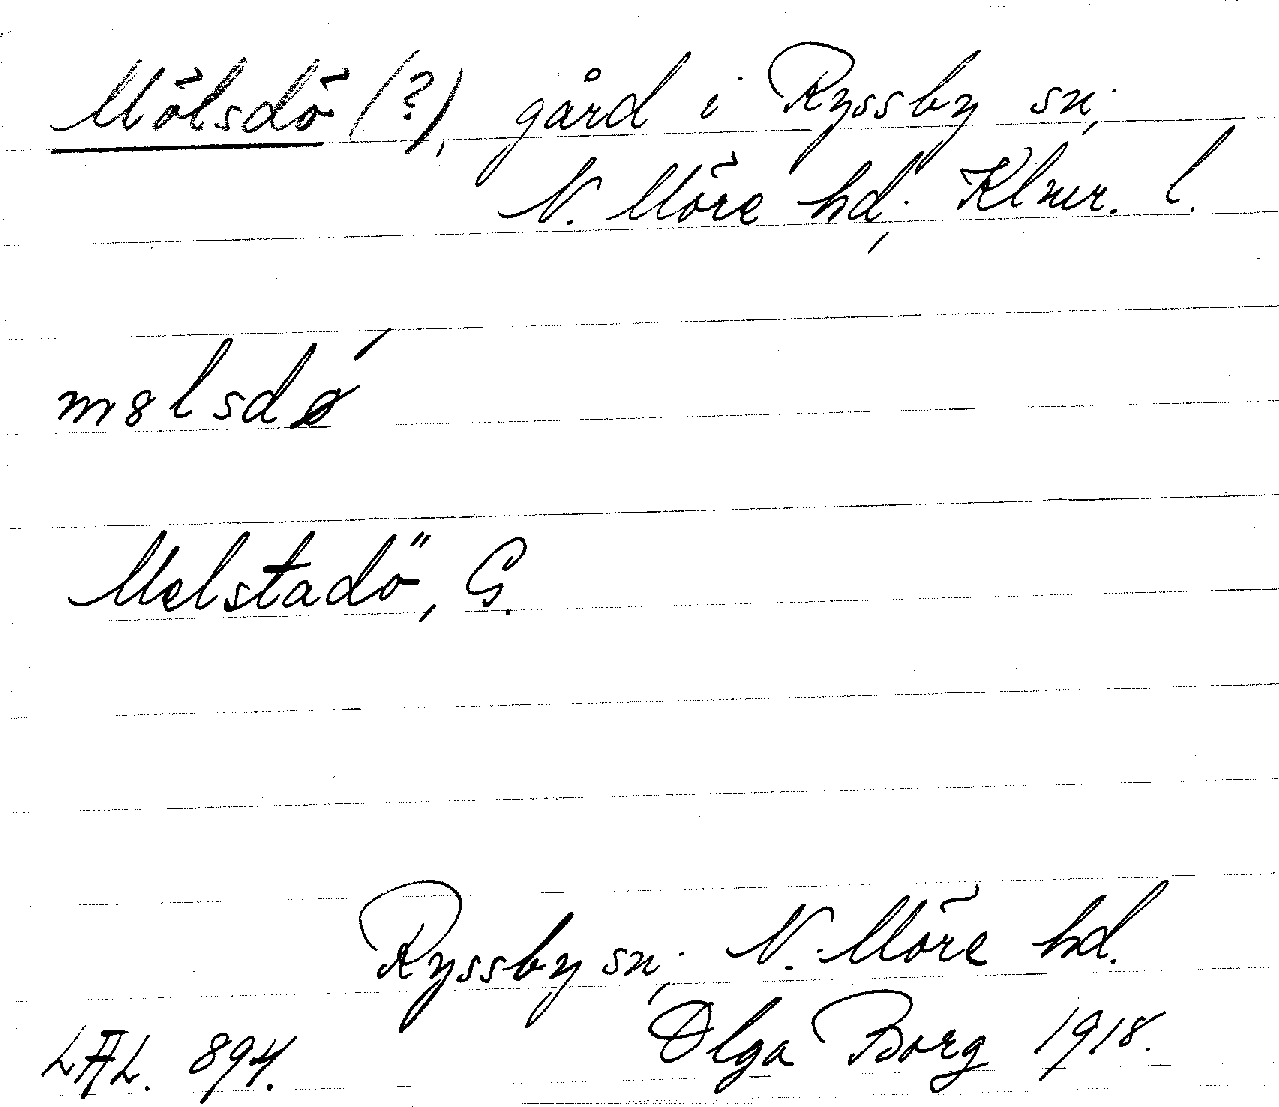 Mölsdö (?), gård i Ryssby sn,
N. Möre hd, Klmr. l.
mølsdø
Melstadö, G.
Ryssby sn, N. Möre hd.
LAL. 894. Olga Borg 1918.